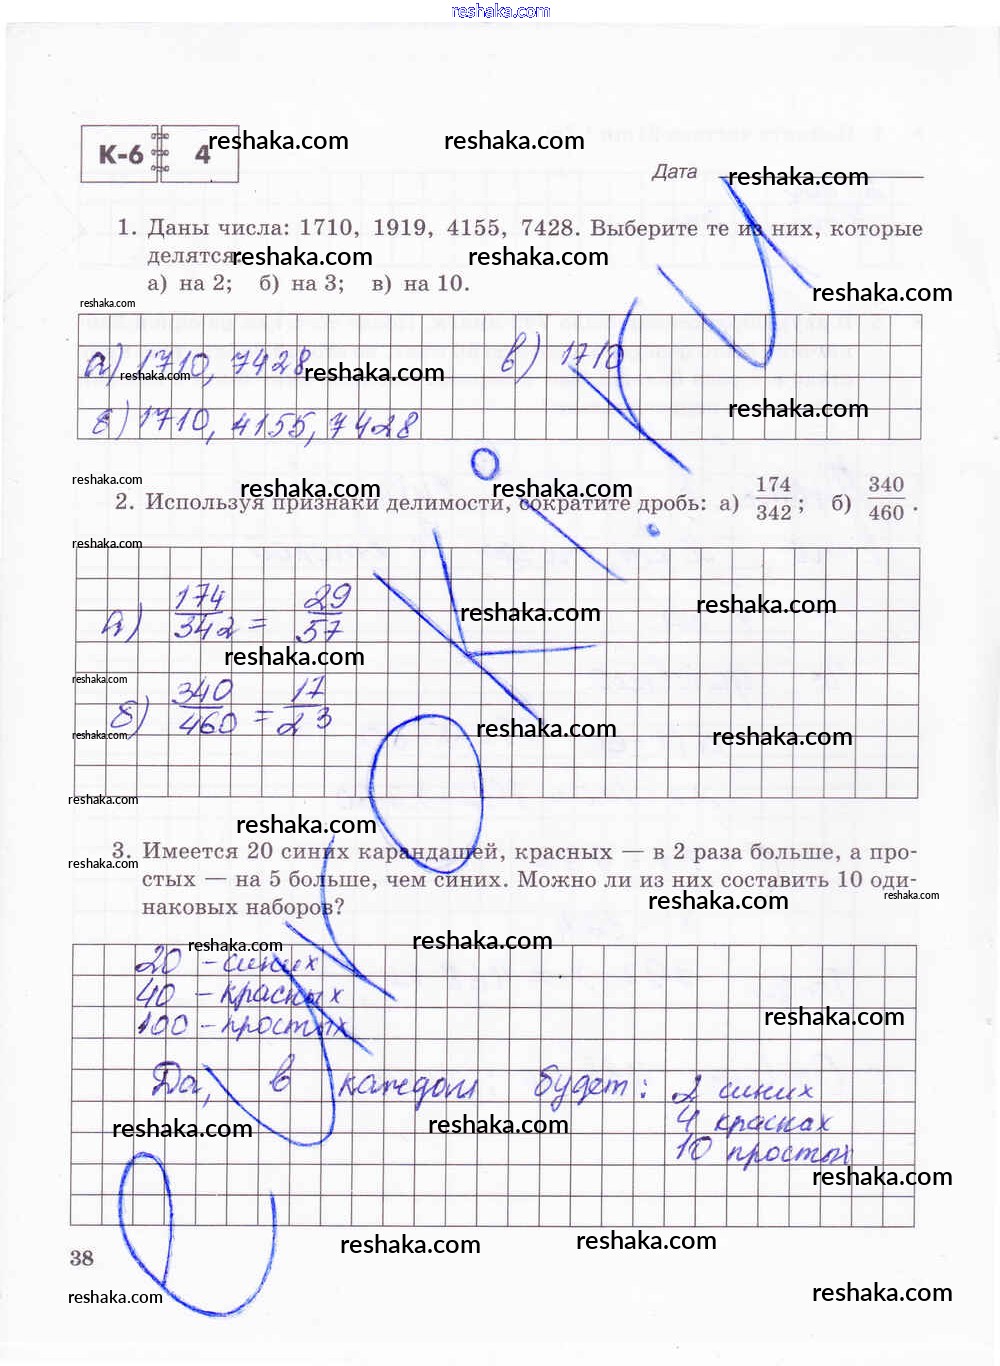 reshaka.com
К-6 4
reshaka.com reshaka.com
Дата reshaka.com
1. Даны числа: 1710, 1919, 4155, 7428. Выберите те из них, которые
делятся: reshaka.com reshaka.com
а) на 2; б) на 3; в) на 10. reshaka.com
reshaka.com
а) 1710, 7428 в) 1710
reshaka.com reshaka.com
reshaka.com
б) 1710, 4155, 7428
reshaka.com reshaka.com reshaka.com
2. Используя признаки делимости, сократите дробь: а) 174/342; б) 340/460.
reshaka.com
а) 174/342 = 29/57
reshaka.com reshaka.com
reshaka.com
reshaka.com
б) 340/460 = 17/23
reshaka.com reshaka.com reshaka.com
reshaka.com
reshaka.com
3. Имеется 20 синих карандашей, красных — в 2 раза больше, а про-
reshaka.com
стых — на 5 больше, чем синих. Можно ли из них составить 10 оди-
reshaka.com reshaka.com
наковых наборов?
reshaka.com reshaka.com
20 - синих
40 - красных
100 - простых
reshaka.com
Да, в каждом будет: 2 синих
4 красных
reshaka.com reshaka.com
10 простой
reshaka.com
reshaka.com reshaka.com
38
reshaka.com reshaka.com